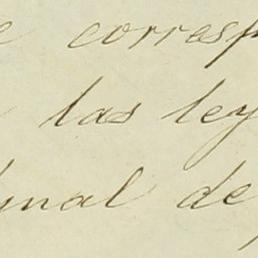 e corresp
las ley
unal de